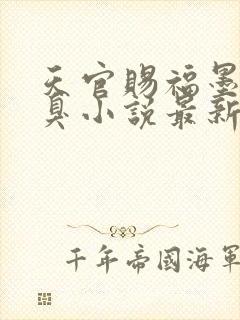 天官賜福墨
臭小說最新
千年帝國海軍